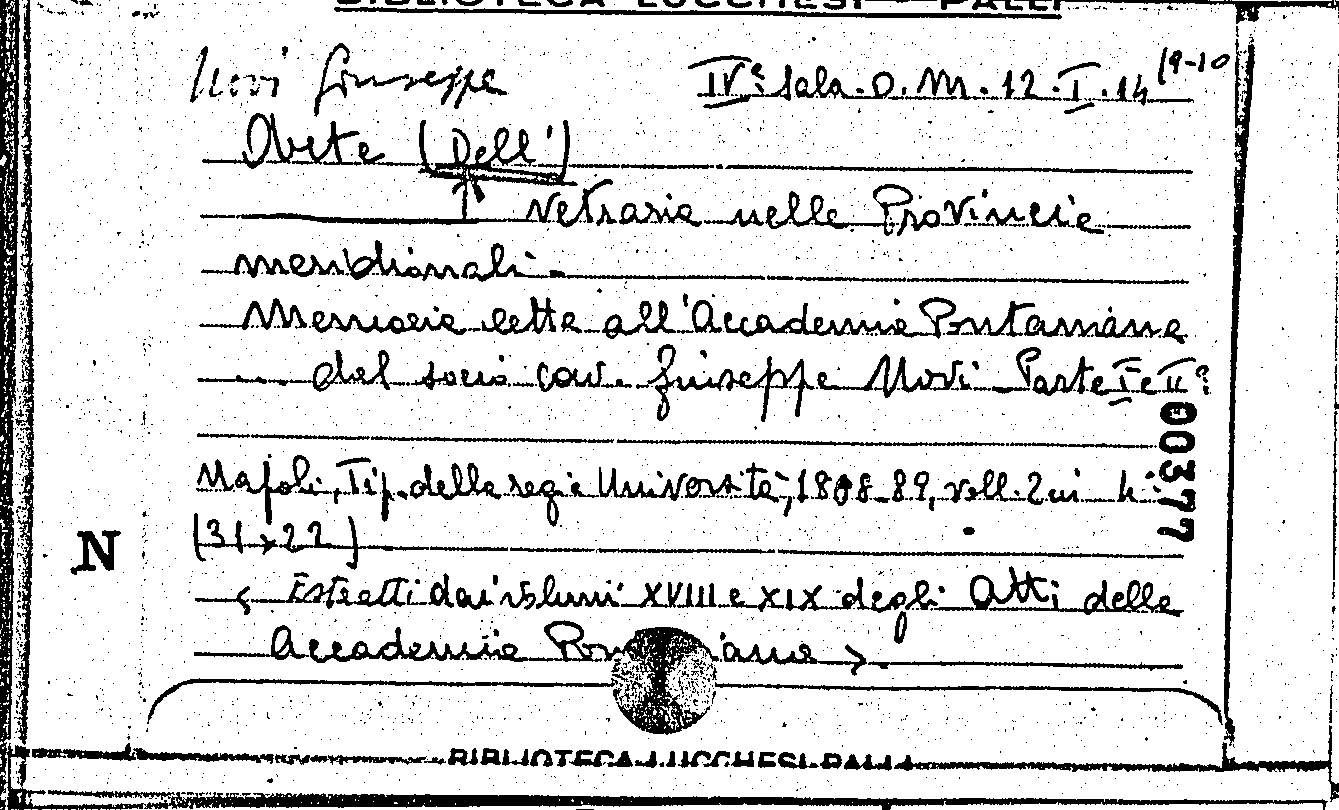 BIBLIOTECA LUCCHESI - PALLI
Novi Giuseppe
IVª Sala. O. M. 12. I. 14 (9-10
Arte (Dell')
vetraria nelle Provincie
meridionali. -
Memoria letta all'Accademia Pontaniana
... dal socio cav. Giuseppe Novi Parte I e IIª
Napoli, Tip. della regia Università, 1888-89, voll. 2 in 4:
(31x22)
N
00377
< Estratti dai volumi XVIII e XIX degli Atti della
Accademia Pontaniana >.
BIBLIOTECA LUCCHESI-PALLI